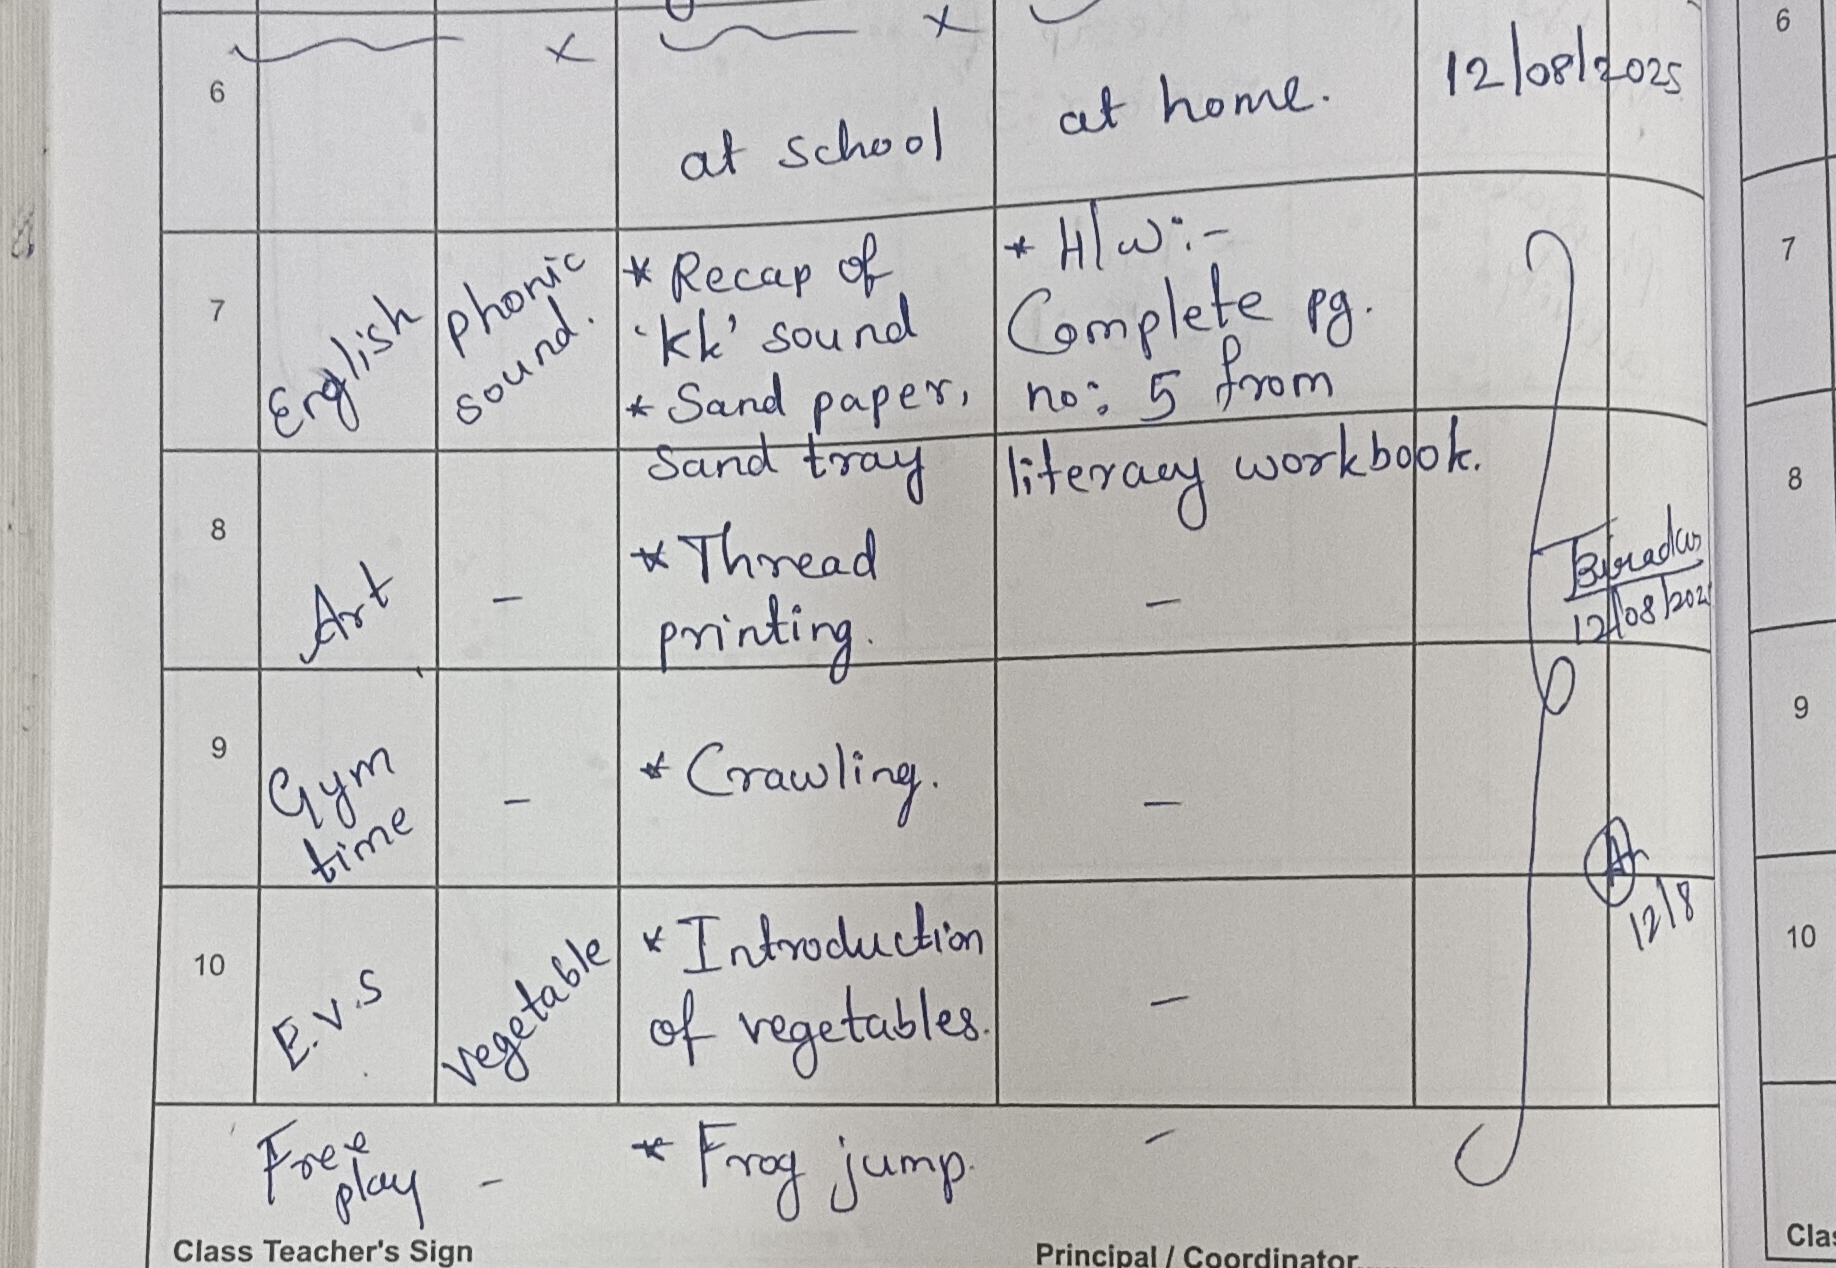 6
x
x
at school
at home.
12/08/2025
6
7
English
phonic
sound.
* Recap of
'kk' sound
* Sand paper,
sand tray
* H/w:-
Complete pg.
no: 5 from
literacy workbook.
7
8
Art
-
* Thread
printing.
-
12/08/202
8
9
Gym
time
-
* Crawling.
-
9
10
E.v.s
vegetable
* Introduction
of vegetables.
-
12/8
10
Free
play
-
* Frog jump.
-
Class Teacher's Sign
Principal / Coordinator
Clas